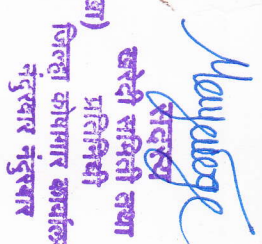 खा)
सदस्य
खरेदी समिती तथा
प्रतिनिधी
जिल्हा कोषागार कार्याल
नंदुरबार नंदुरबार